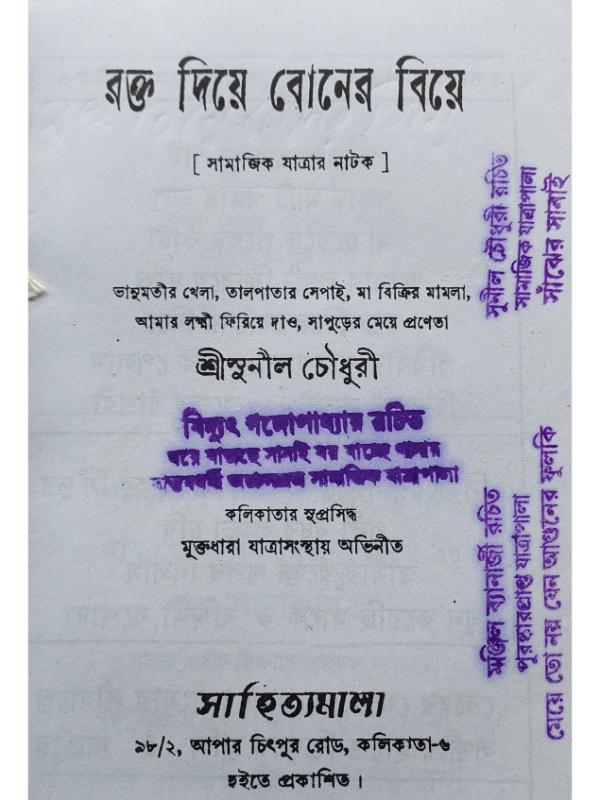 রক্ত দিয়ে বোনের বিয়ে
[ সামাজিক যাত্রার নাটক ]
ভানুমতীর খেলা, তালপাতার সেপাই, মা বিক্রির মামলা,
আমার লক্ষ্মী ফিরিয়ে দাও, সাপুড়ের মেয়ে প্রণেতা
শ্রীসুনীল চৌধুরী
বিদ্যুৎ গঙ্গোপাধ্যায় রচিত
সানাই
সামাজিক যাত্রাপালা
কলিকাতার সুপ্রসিদ্ধ
মুক্তধারা যাত্রাসংস্থায় অভিনীত
সাহিত্যমালা
৯৮/২, আপার চিৎপুর রোড, কলিকাতা-৬
হইতে প্রকাশিত ।
সুনীল চৌধুরী রচিত
সামাজিক যাত্রাপালা
সাঁঝের সানাই
ব্যানার্জী রচিত
পুরস্কারপ্রাপ্ত যাত্রাপালা
মেয়ে তো নয় যেন আগুনের ফুলকি